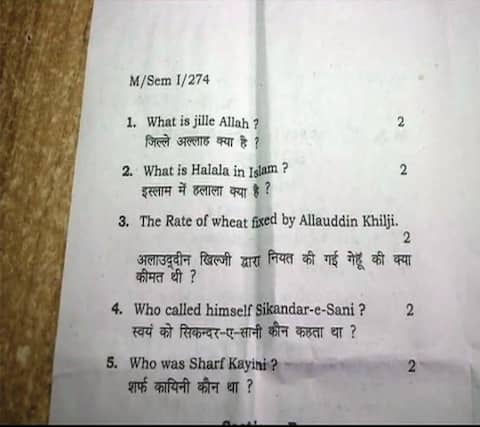 M/Sem I/274
1. What is jille Allah ? 2
जिल्ले अल्लाह क्या है ?
2. What is Halala in Islam ? 2
इस्लाम में हलाला क्या है ?
3. The Rate of wheat fixed by Allauddin Khilji.
2
अलाउद्दीन खिल्जी द्वारा नियत की गई गेहूँ की क्या
कीमत थी ?
4. Who called himself Sikandar-e-Sani ? 2
स्वयं को सिकन्दर-ए-सानी कौन कहता था ?
5. Who was Sharf Kayini ? 2
शर्फ कायिनी कौन था ?